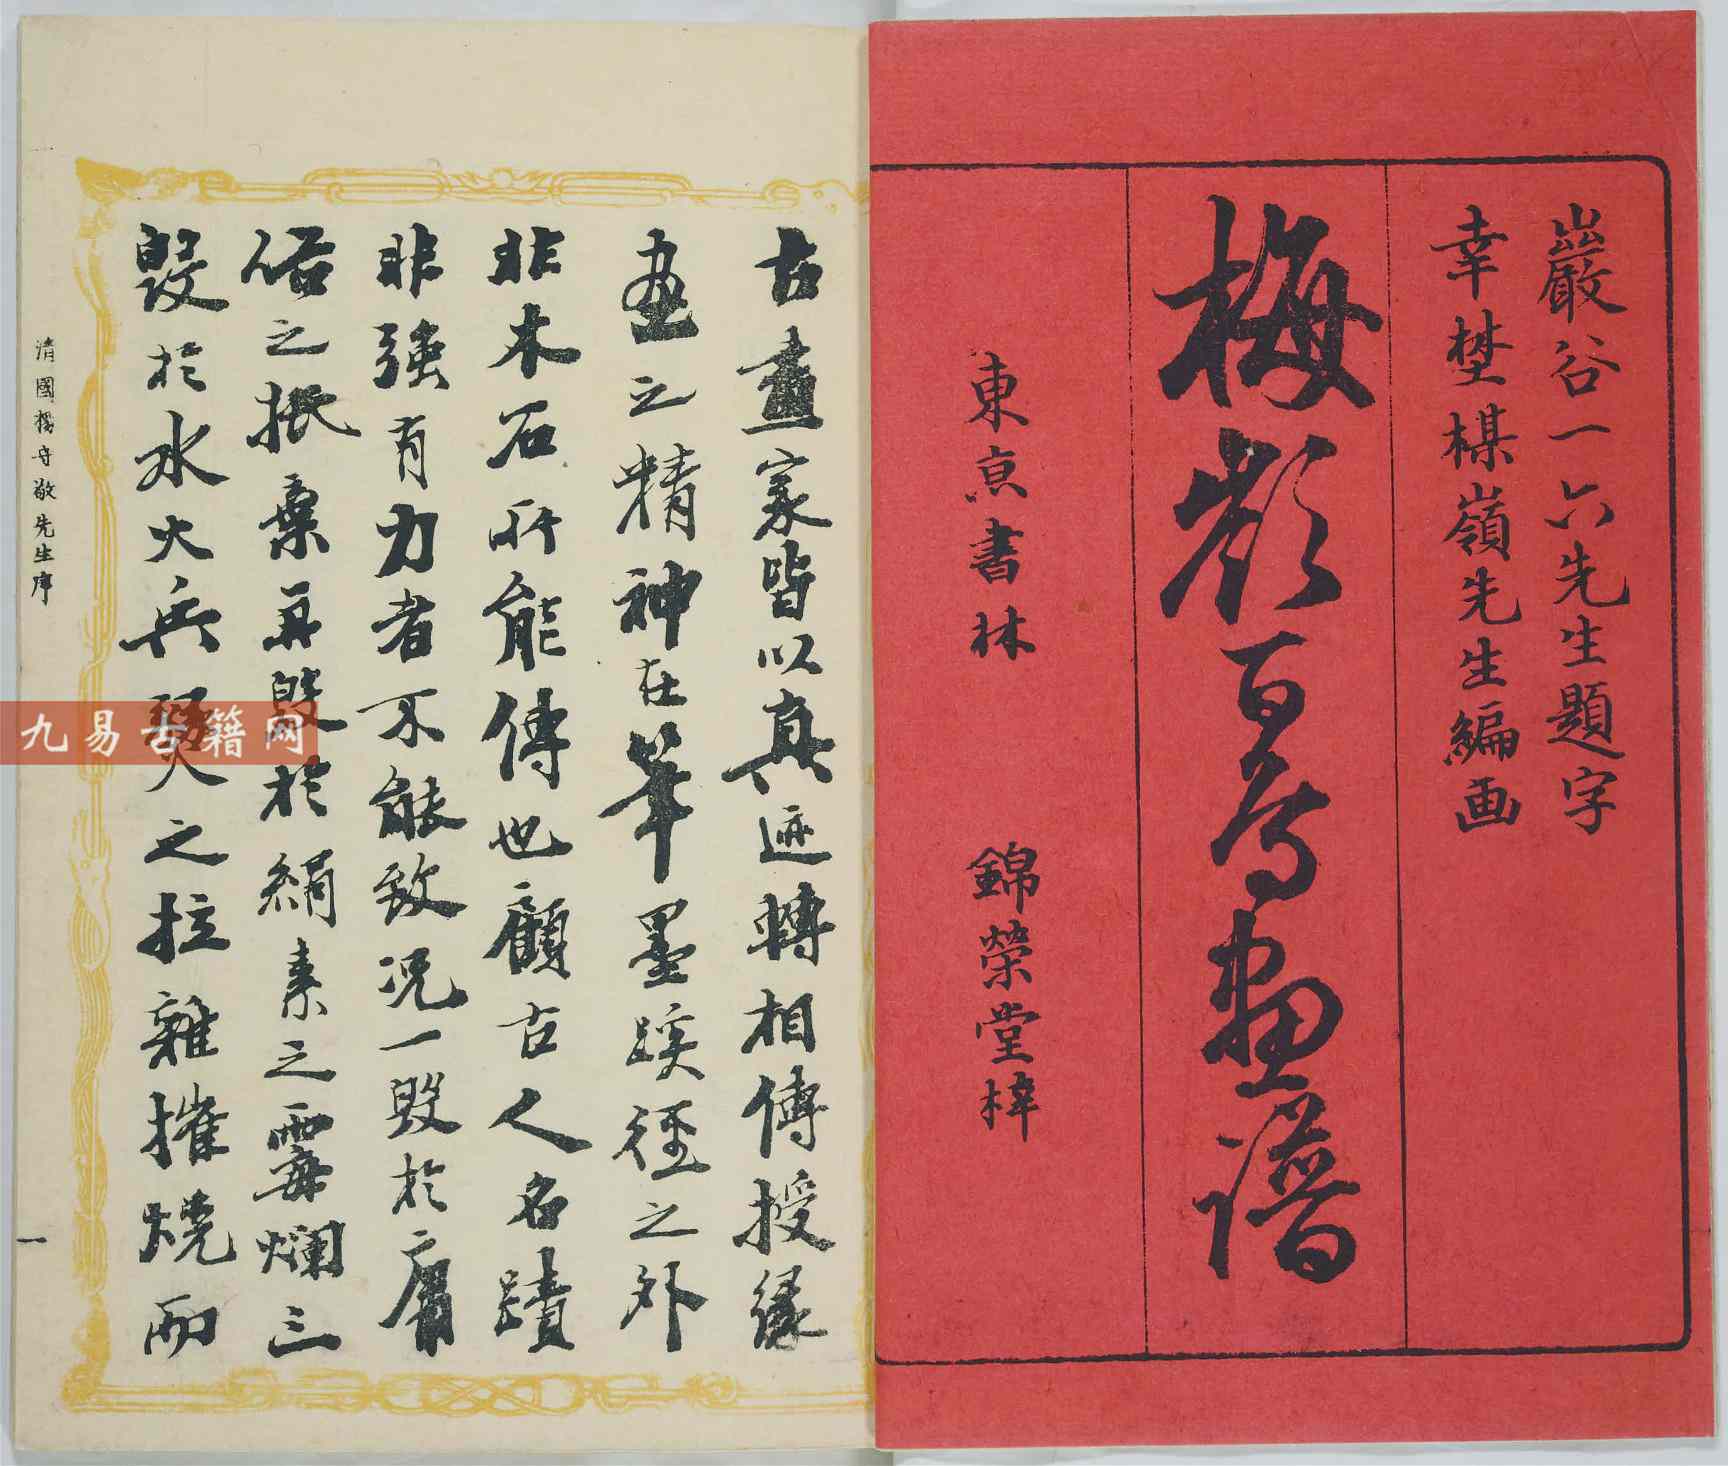 巖谷一六先生題字
幸埜楳嶺先生編画
梅嶺百鳥畫譜
東京書林 錦榮堂梓
古畫家皆以真迹轉相傳授緣
畫之精神在筆墨蹊徑之外
非木石所能傳也顧古人名蹟
非強有力者不能致况一毀於庸
俗之抵棄再毀於絹素之霉爛三
毀於水火兵燹之拉雜摧燒而
清國楊守敬先生序
一
九易古籍网